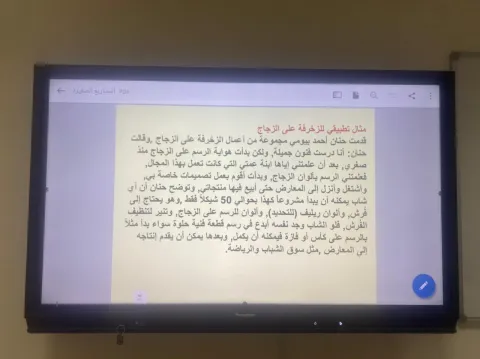 مثال تطبيقي للزخرفة على الزجاج
قدمت حنان أحمد بيومي مجموعة من أعمال الزخرفة على الزجاج, وقالت
حنان: أنا درست فنون جميلة, ولكن بدأت هواية الرسم على الزجاج منذ
صغري, بعد أن علمتني إياها ابنة عمتي التي كانت تعمل بهذا المجال,
فعلمتني الرسم بالوان الزجاج, وبدأت أقوم بعمل تصميمات خاصة بي,
وأشتغل وأنزل إلى المعارض حتى أبيع فيها منتجاتي, وتوضح حنان أن أي
شاب يمكنه أن يبدأ مشروعا كهذا بحوالي 50 شيكلاً فقط, وهو يحتاج إلى
فرش, وألوان ريليف (للتحديد), وألوان للرسم على الزجاج, وتنير لتنظيف
الفرش, فلو الشاب وجد نفسه أبدع في رسم قطعة فنية حلوة سواء بدأ مثلاً
بالرسم على كأس أو فازة فيمكنه أن يكمل, وبعدها يمكن أن يقدم إنتاجه
إلى المعارض, مثل سوق الشباب والرياضة.